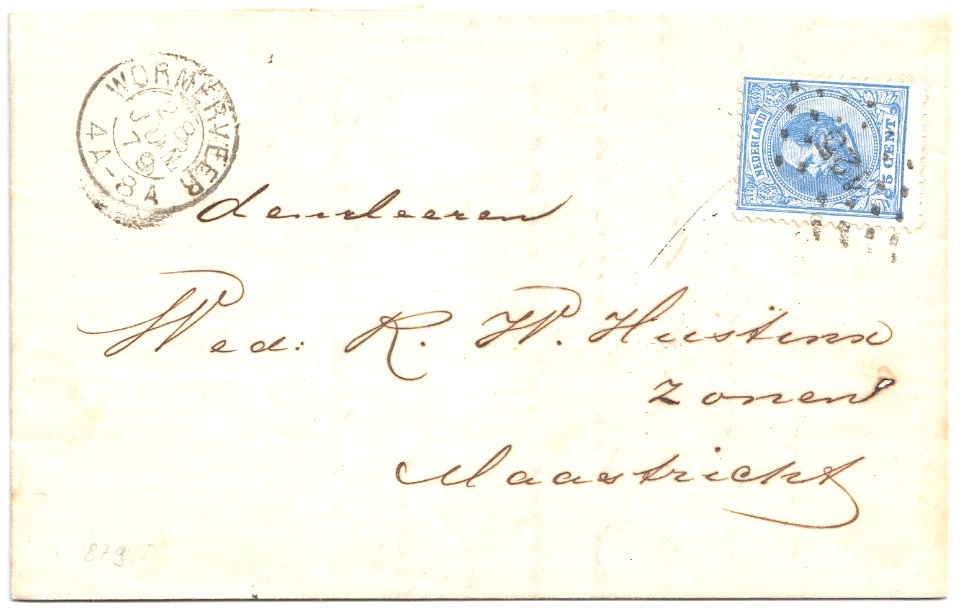 WORMERVEER
28
JUN
79
4A-8A
NEDERLAND
5 CENT
den heeren
Wed: K. W. Hustinx
zonen
Maastricht
879